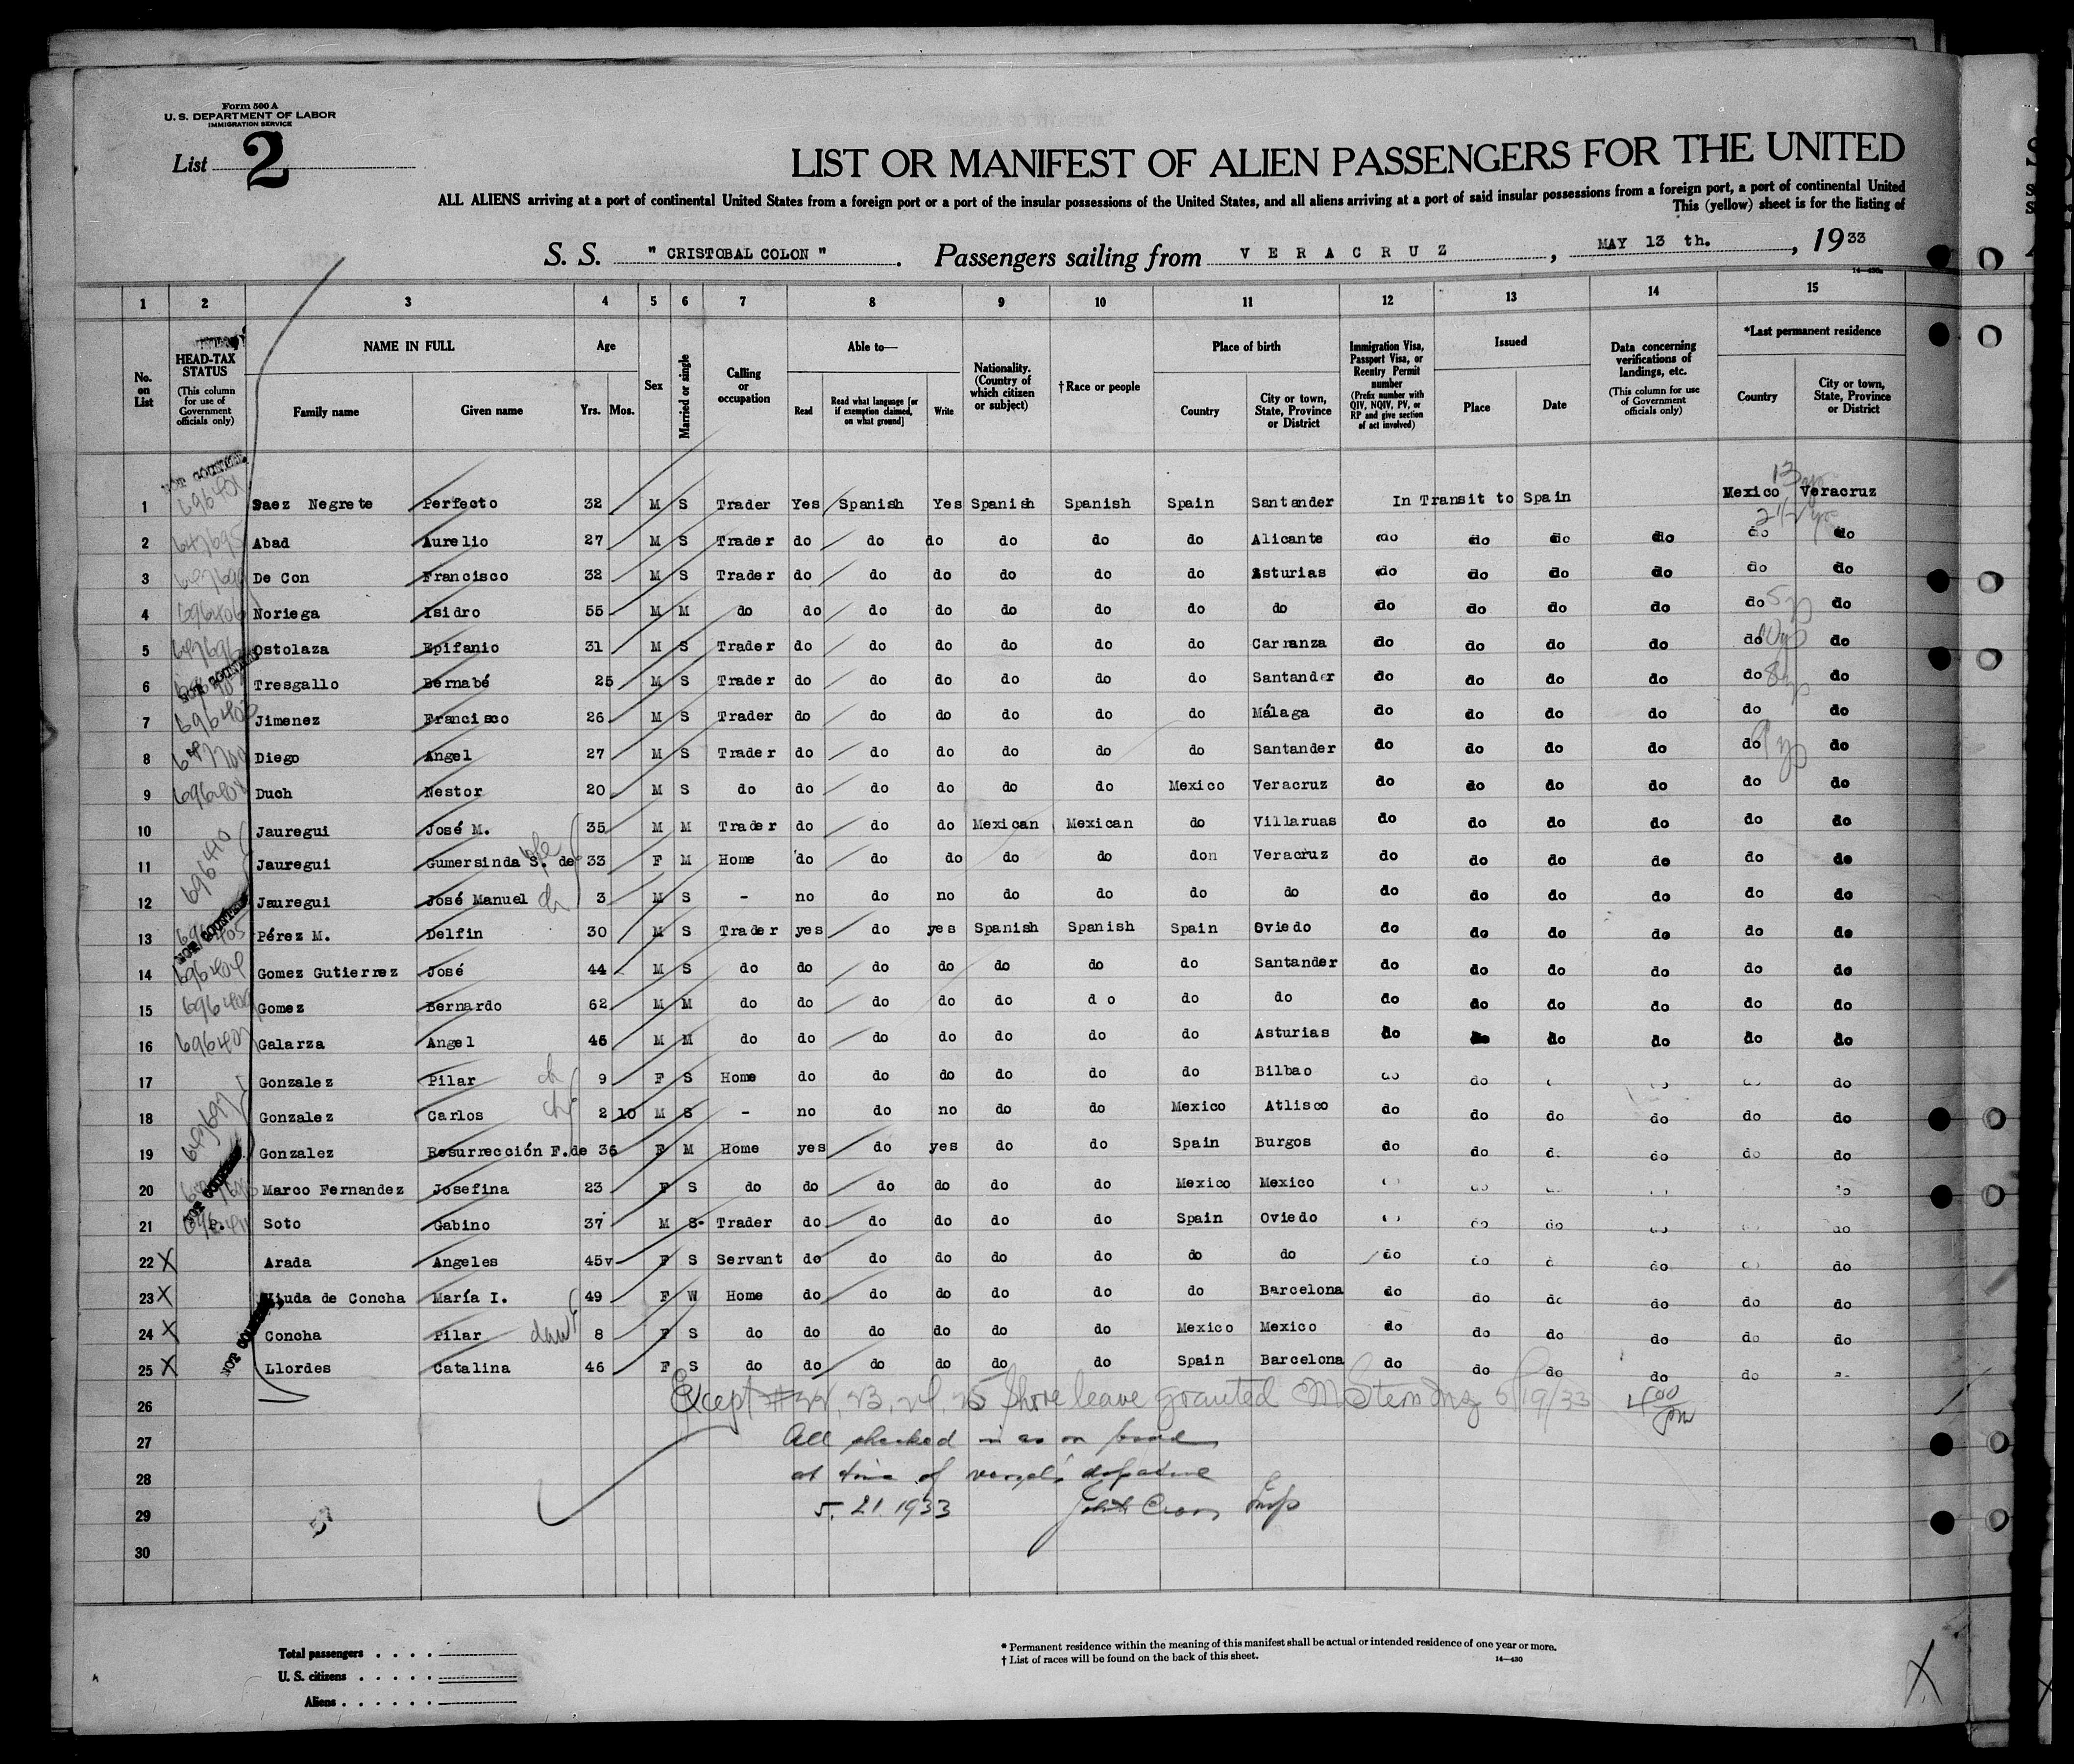 Form 500 A
U. S. DEPARTMENT OF LABOR
IMMIGRATION SERVICE
List 2
LIST OR MANIFEST OF ALIEN PASSENGERS FOR THE UNITED
ALL ALIENS arriving at a port of continental United States from a foreign port or a port of the insular possessions of the United States, and all aliens arriving at a port of said insular possessions from a foreign port, a port of continental United
This (yellow) sheet is for the listing of
S. S. " CRISTOBAL COLON " . Passengers sailing from VERACRUZ , MAY 13 th. , 1933
1 2 3 4 5 6 7 8 9 10 11 12 13 14 15
No. on List
HEAD-TAX STATUS (This column for use of Government officials only)
NAME IN FULL Family name Given name
Age Yrs. Mos.
Sex
Married or single
Calling or occupation
Able to— Read Read what language [or if exemption claimed, on what ground] Write
Nationality. (Country of which citizen or subject)
†Race or people
Place of birth Country City or town, State, Province or District
Immigration Visa, Passport Visa, or Reentry Permit number (Prefix number with QIV, NQIV, PV, or RP and give section of act involved)
Issued Place Date
Data concerning verifications of landings, etc. (This column for use of Government officials only)
*Last permanent residence Country City or town, State, Province or District
NOT COUNTED 13 yrs
1 696401 Saez Negrete Perfecto 32 M S Trader Yes Spanish Yes Spanish Spanish Spain Santander In Transit to Spain Mexico Veracruz
2 1/2 yrs
2 647695 Abad Aurelio 27 M S Trader do do do do do do Alicante do do do do do do
3 De Con Francisco 32 M S Trader do do do do do do Asturias do do do do do do
4 696406 Noriega Isidro 55 M M do do do do do do do do do do do do do 5 y do
5 647696 Ostolaza Epifanio 31 M S Trader do do do do do do Carranza do do do do do 10 y do
6 NOT COUNTED Tresgallo Bernabé 25 M S Trader do do do do do do Santander do do do do do 8 y do
7 696403 Jimenez Francisco 26 M S Trader do do do do do do Málaga do do do do do do
8 647700 Diego Angel 27 M S Trader do do do do do do Santander do do do do do 9 y do
9 Duch Nestor 20 M S do do do do do do Mexico Veracruz do do do do do do
10 Jauregui José M. 35 M M Trader do do do Mexican Mexican do Villaruas do do do do do do
11 696410 Jauregui Gumersinda S. de wife 33 F M Home do do do do do don Veracruz do do do do do do
12 Jauregui José Manuel ch 3 M S - no do no do do do do do do do do do do
13 NOT COUNTED 696405 Pérez M. Delfin 30 M S Trader yes do yes Spanish Spanish Spain Oviedo do do do do do do
14 696404 Gomez Gutierrez José 44 M S do do do do do do do Santander do do do do do do
15 Gomez Bernardo 62 M M do do do do do d o do do do do do do do do
16 696407 Galarza Angel 46 M M do do do do do do do Asturias do do do do do do
17 Gonzalez Pilar ch 9 F S Home do do do do do do Bilbao do do do
18 647697 Gonzalez Carlos ch 2 10 M S - no do no do do Mexico Atlisco do do do do do do
19 Gonzalez Resurrección F.de 36 F M Home yes do yes do do Spain Burgos do do d. do do do
20 NOT COUNTED Marco Fernandez Josefina 23 F S do do do do do do Mexico Mexico do
21 P. Soto Gabino 37 M S Trader do do do do do Spain Oviedo do do do
22 X Arada Angeles 45v F S Servant do do do do do do do do do do do
23 X Viuda de Concha María I. 49 F W Home do do do do do do Barcelona do do do do do do
24 X NOT COUNTED Concha Pilar dau 8 F S do do do do do do Mexico Mexico do do do do do do
25 X Llordes Catalina 46 F S do do do do do do Spain Barcelona do do do do do
26 Except #22, 23, 24, 25 Shore leave granted 5/19/33 4 00 PM
27 All checked in as on board
28 at time of vessel's departure
29 5. 21. 1933 Insp
30
57
Total passengers . . . .
U. S. citizens . . . . .
Aliens . . . . . .
* Permanent residence within the meaning of this manifest shall be actual or intended residence of one year or more.
† List of races will be found on the back of this sheet.
14—430
X